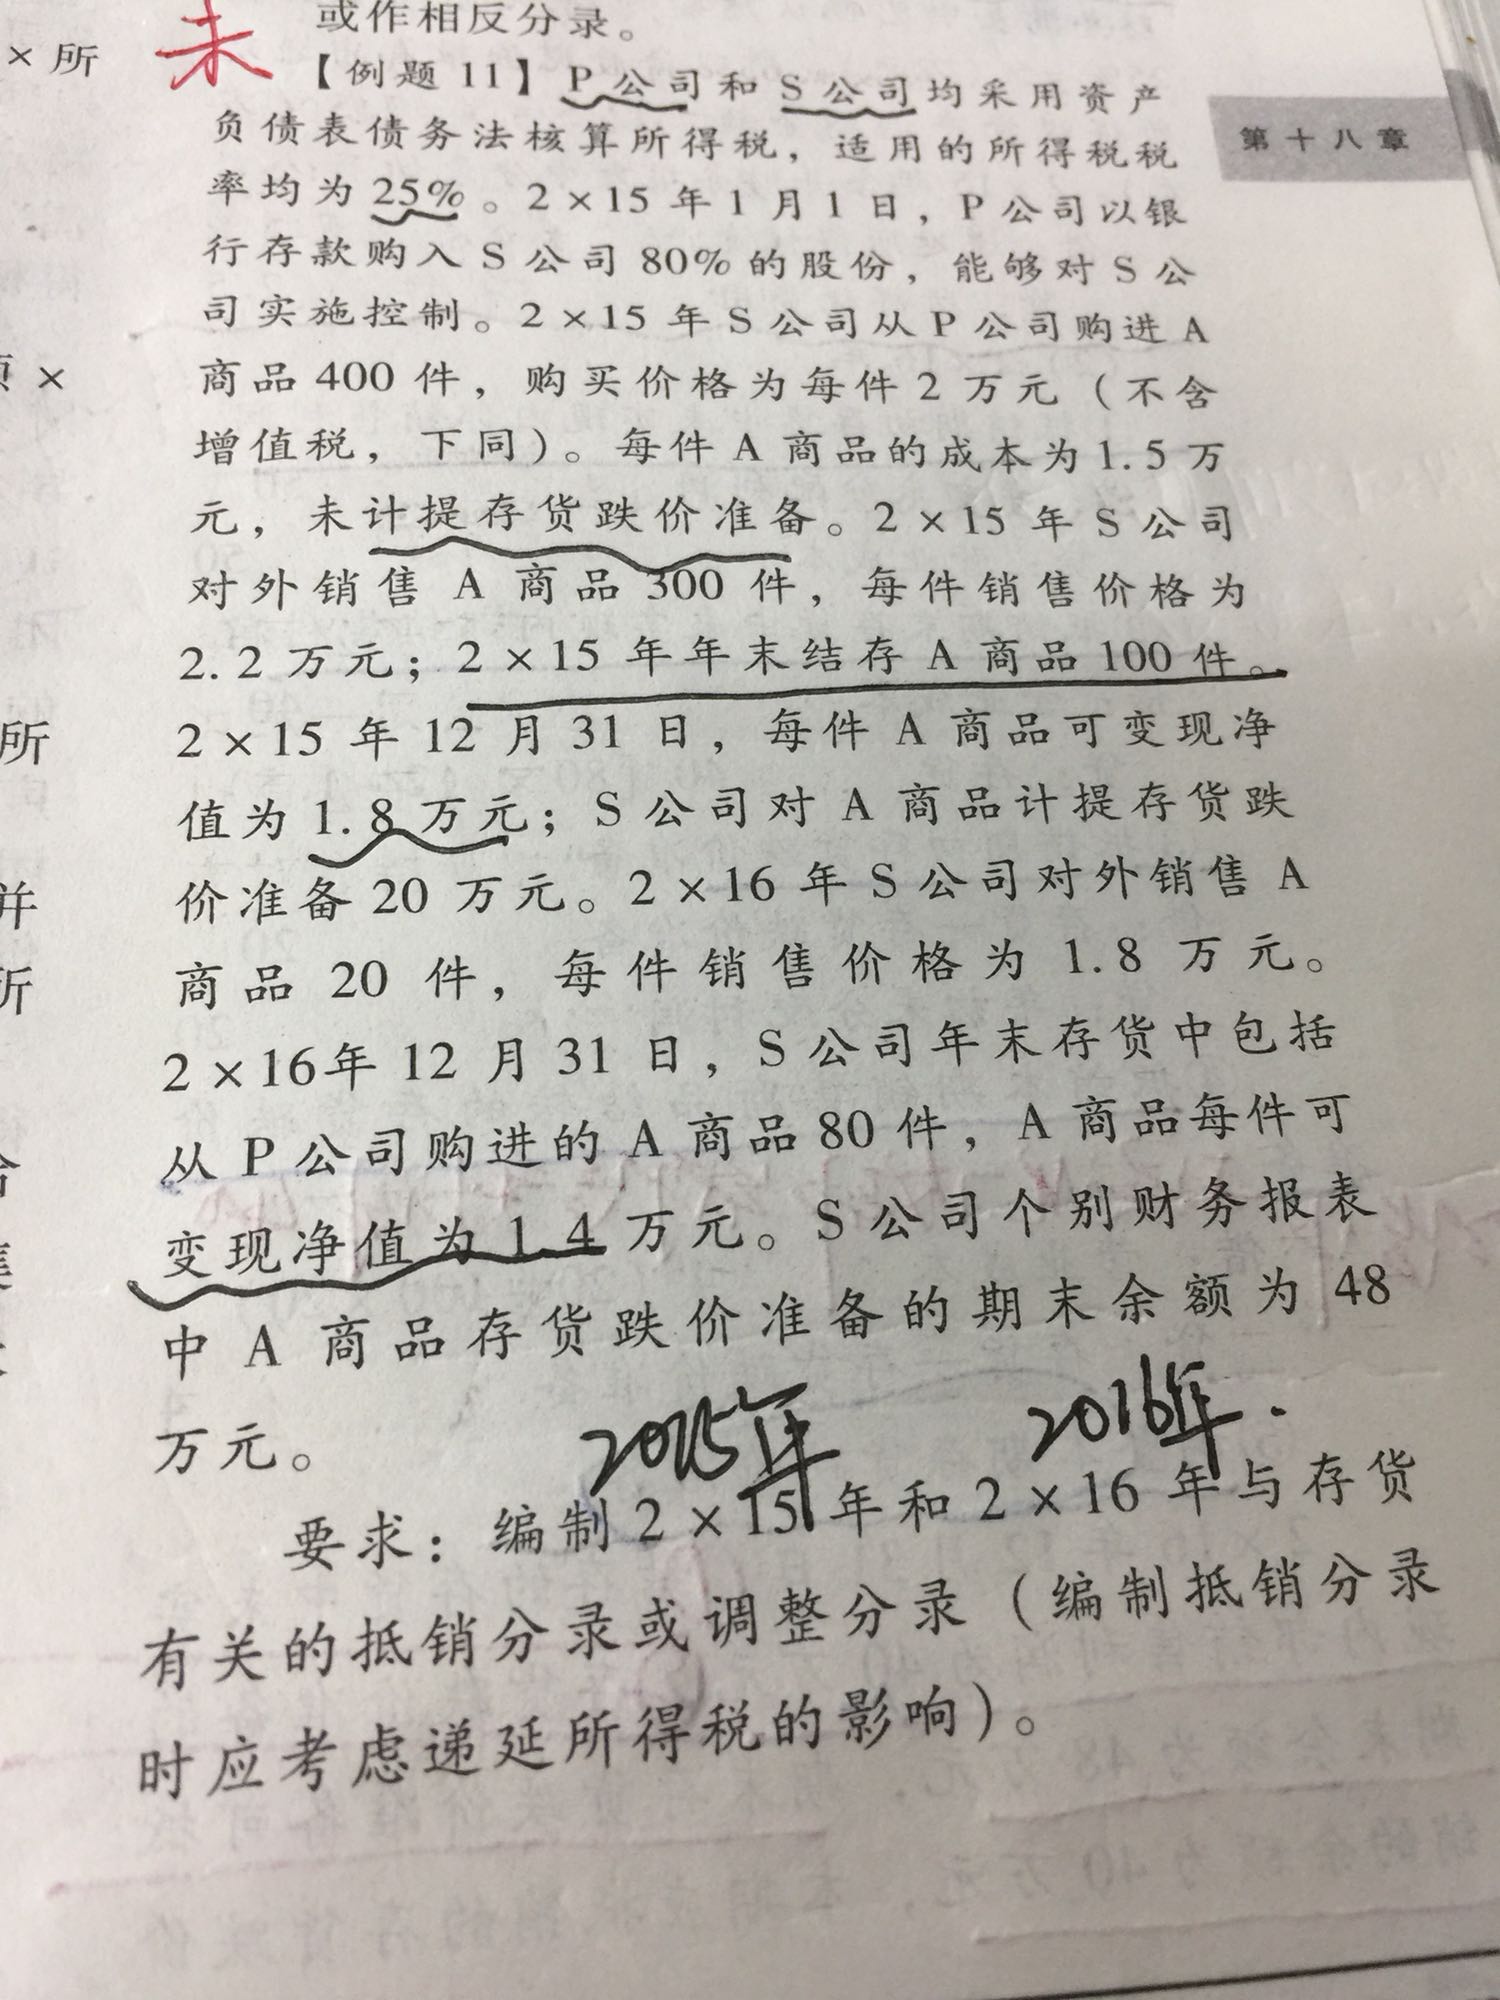 或作相反分录。
× 所
未
【例题 11】P 公司和 S 公司均采用资产
第十八章
负债表债务法核算所得税，适用的所得税税
率均为 25%。2×15 年 1 月 1 日，P 公司以银
行存款购入 S 公司 80% 的股份，能够对 S 公
司实施控制。2×15 年 S 公司从 P 公司购进 A
商品 400 件，购买价格为每件 2 万元（不含
增值税，下同）。每件 A 商品的成本为 1.5 万
元，未计提存货跌价准备。2×15 年 S 公司
对外销售 A 商品 300 件，每件销售价格为
2.2 万元；2×15 年年末结存 A 商品 100 件。
所
2×15 年 12 月 31 日，每件 A 商品可变现净
值为 1.8 万元；S 公司对 A 商品计提存货跌
价准备 20 万元。2×16 年 S 公司对外销售 A
商品 20 件，每件销售价格为 1.8 万元。
2×16年 12 月 31 日，S 公司年末存货中包括
从 P 公司购进的 A 商品 80 件，A 商品每件可
变现净值为 1.4 万元。S 公司个别财务报表
中 A 商品存货跌价准备的期末余额为 48
万元。
2015年
2016年.
要求：编制 2×15 年和 2×16 年与存货
有关的抵销分录或调整分录（编制抵销分录
时应考虑递延所得税的影响）。